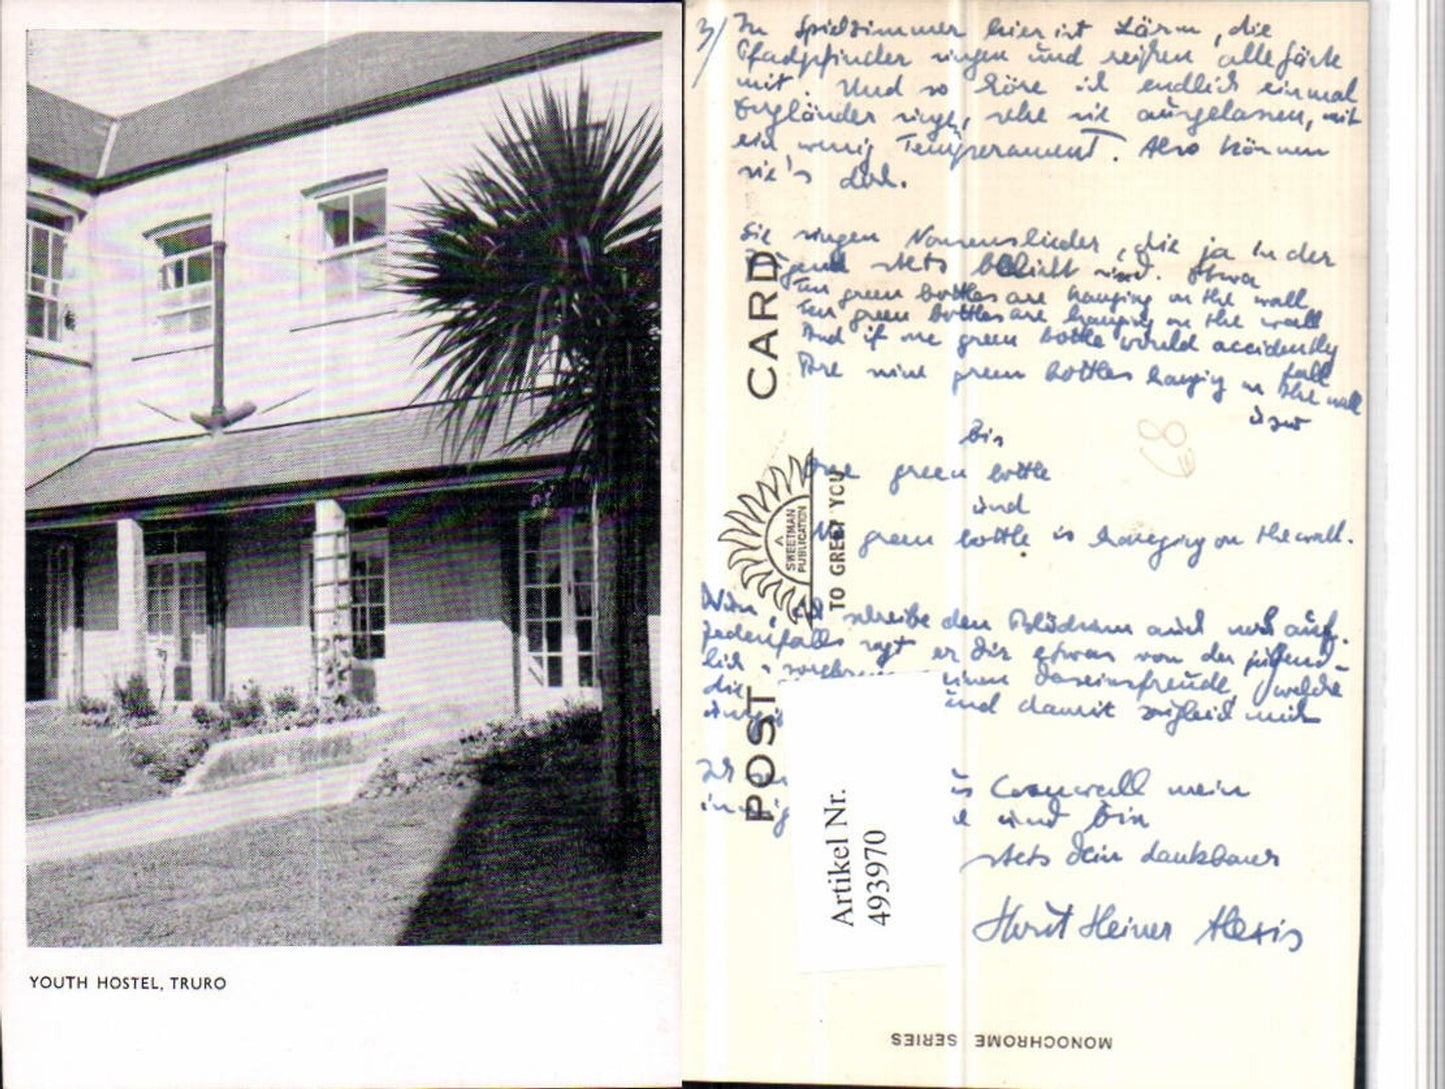 YOUTH HOSTEL, TRURO
3/ Im Spielzimmer hier ist Lärm, die
Pfadpfinder singen und reißen alle Gäste
mit. Und so höre ich endlich einmal
Engländer singen, sehe sie ausgelassen, mit
ein wenig Temperament. Also können
sie's doch.
Sie singen Nonsenslieder, die ja in der
Jugend stets beliebt sind. Etwa
Ten green bottles are hanging on the wall
Ten green bottles are hanging on the wall
And if one green bottle would accidently
fall
Are nine green bottles hanging on the wall
usw
bis
One green bottle
und
No green bottle is hanging on the wall.
schreibe den Blödsinn auch noch auf.
Jedenfalls sagt er Dir etwas von der jugend-
lich einen Daseinsfreude, welche
die und damit zugleich mich
Ich Cornwall mein
und bin
stets Dein dankbarer
Horst Heiner Alexis
POST CARD
A
SWEETMAN
PUBLICATION
TO GREET YOU
E8
Artikel Nr.
493970
MONOCHROME SERIES